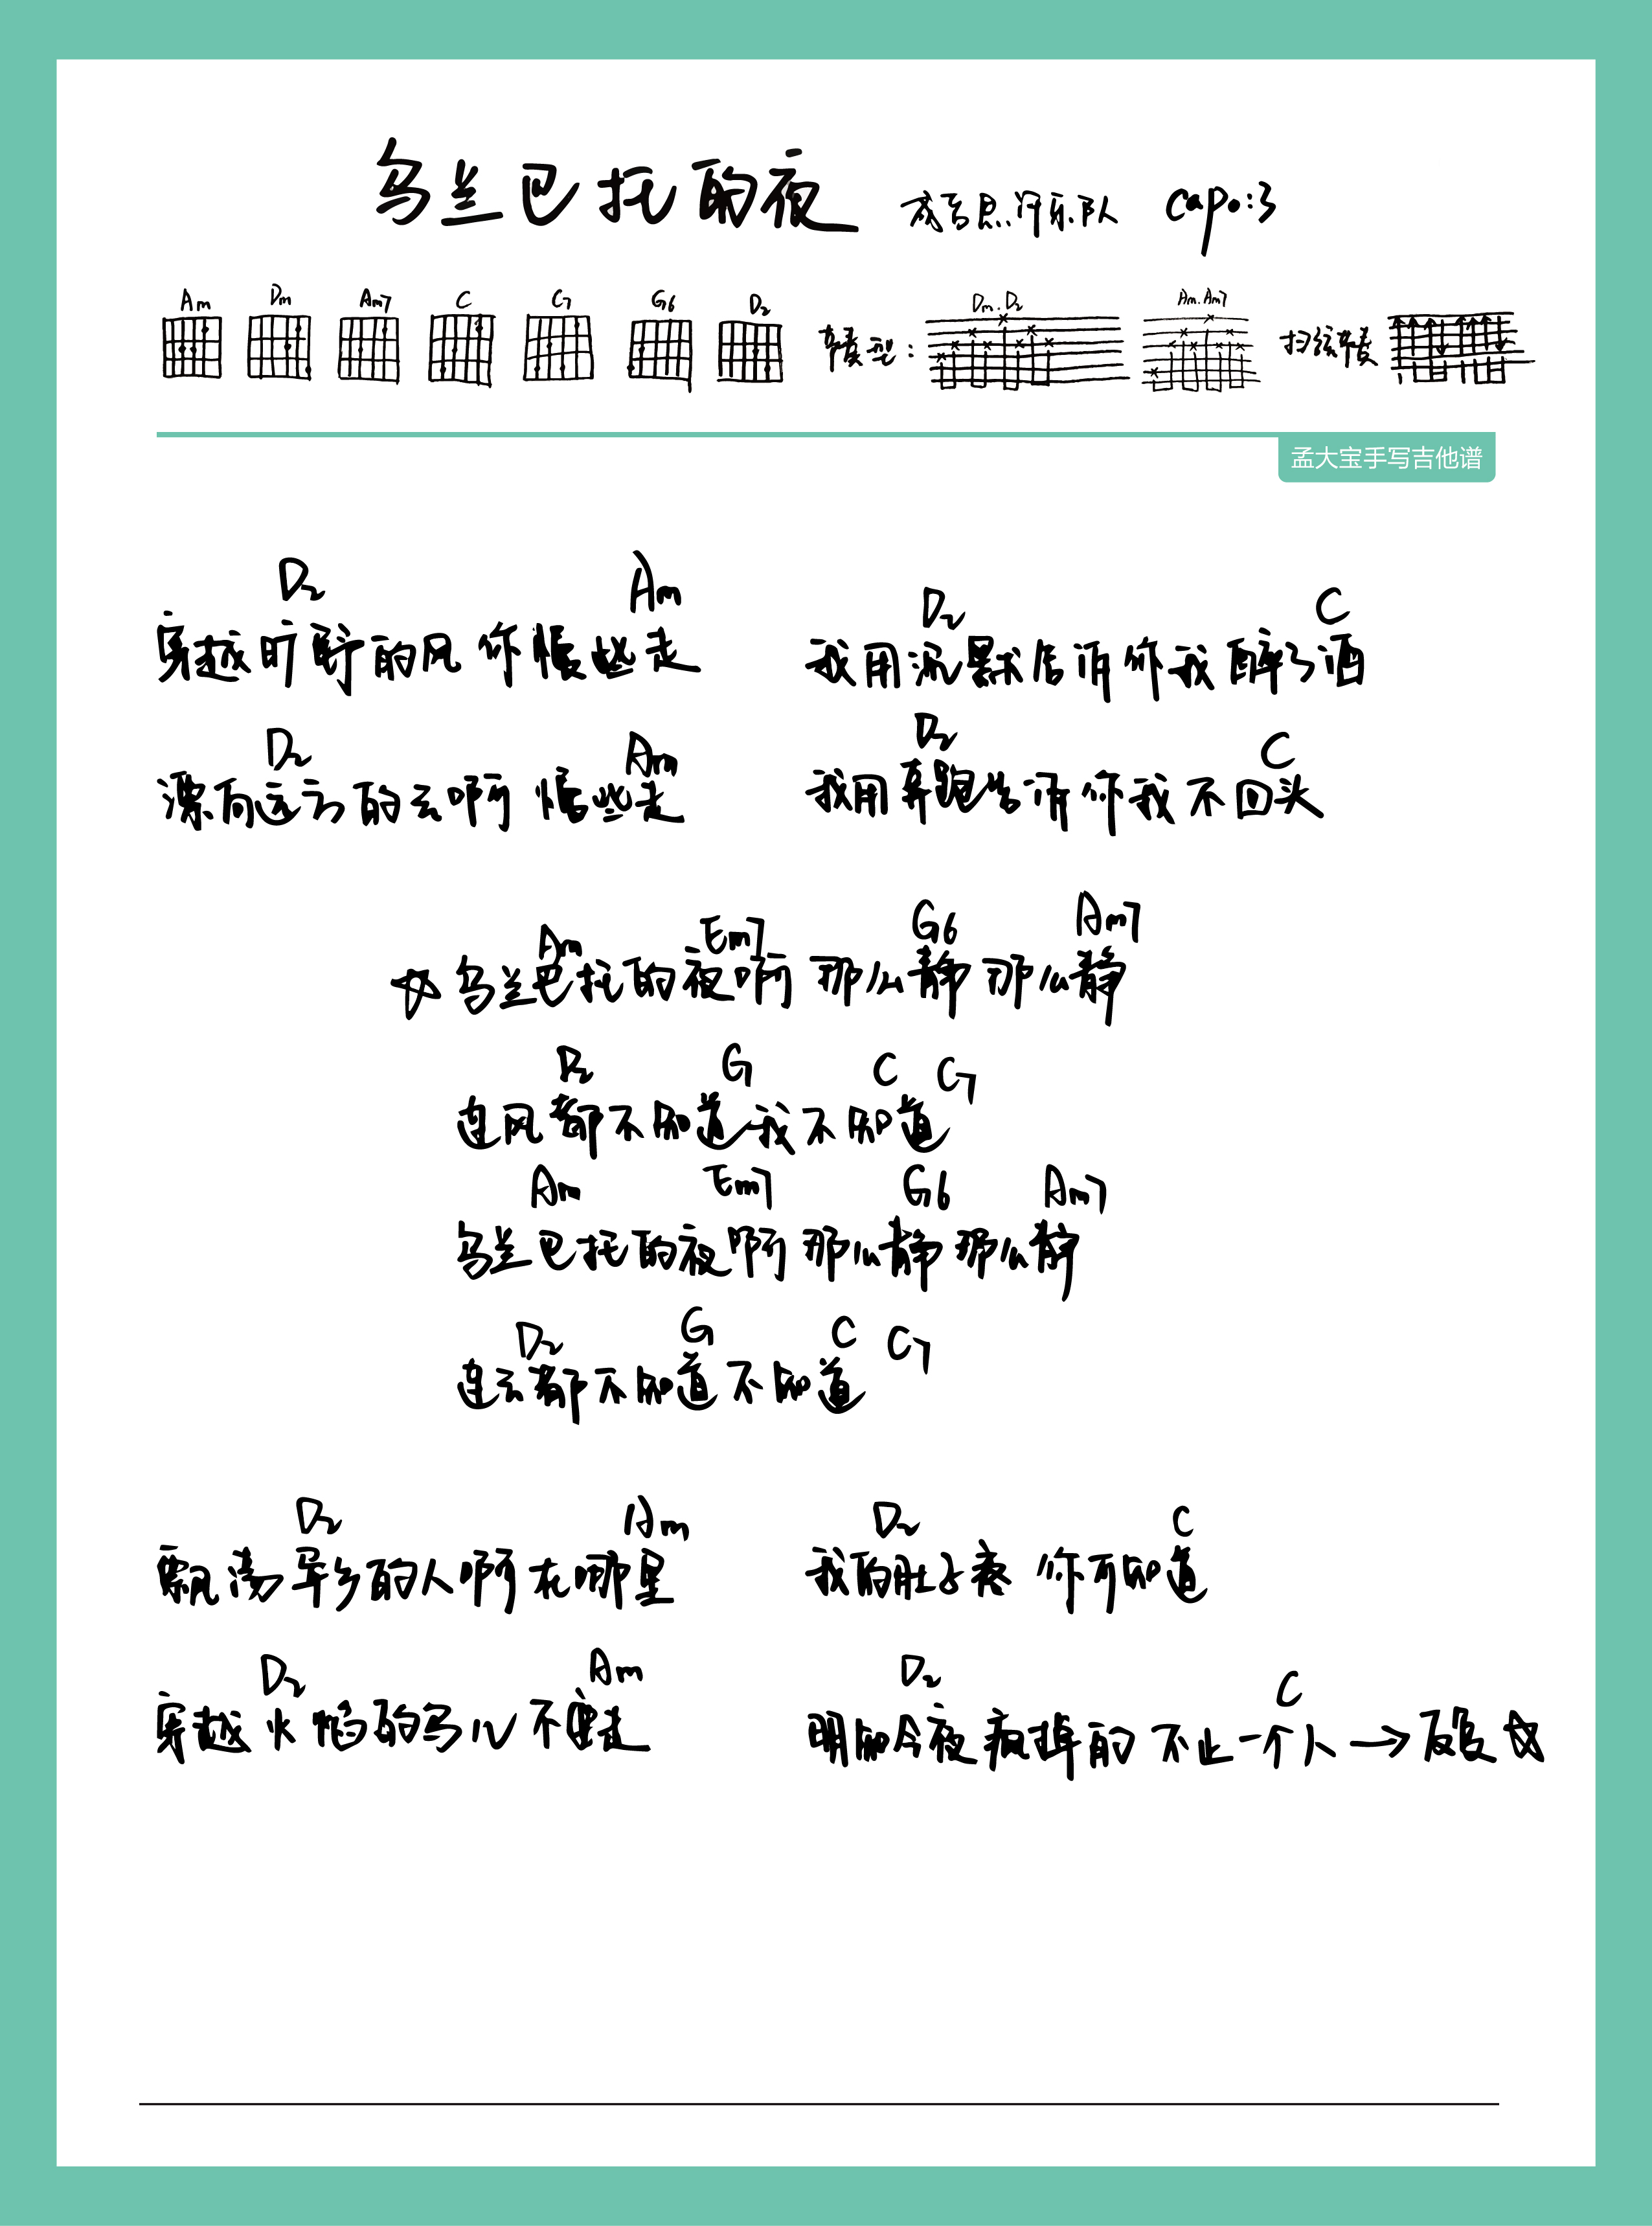 乌兰巴托的夜 成吉思汗乐队 Capo:3
Am Dm Am7 C C7 G6 D2 节奏型: Dm.D2 Am.Am7 扫弦节奏
孟大宝手写吉他谱
D2 Am D2 C
穿越旷野的风 你慢些走 我用沉默告诉你我醉了酒
D2 Am D2 C
漂向远方的云啊 慢些走 我用奔跑告诉你我不回头
Am Em7 G6 Am7
☆乌兰巴托的夜啊 那么静 那么静
D2 G C C7
连风都不知道我不知道
Am Em7 G6 Am7
乌兰巴托的夜啊 那么静 那么静
D2 G C C7
连云都不知道不知道
D2 Am D2 C
飘荡异乡的人啊在哪里 我的肚子疼 你可知道
D2 Am D2 C
穿越火焰的马儿不要走 明知今夜疯掉的 不止一个人→反复☆